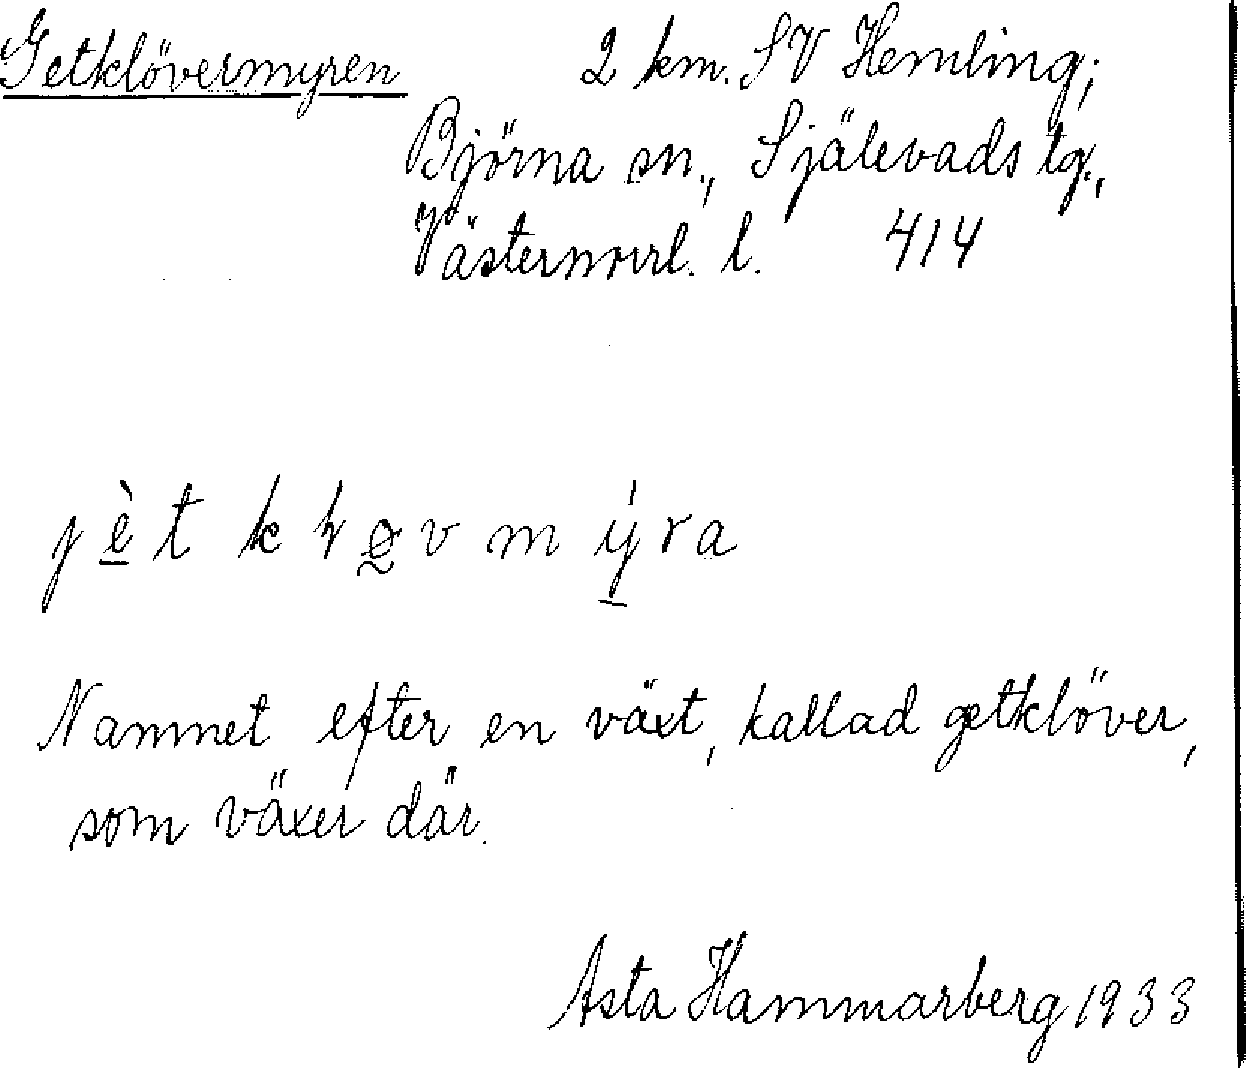 Getklövermyren 2 km. SV Hemling;
Björna sn., Själevads tg.,
Västernorrl. l. 414
Namnet efter en växt, kallad getklöver,
som växer där.
Asta Hammarberg 1933